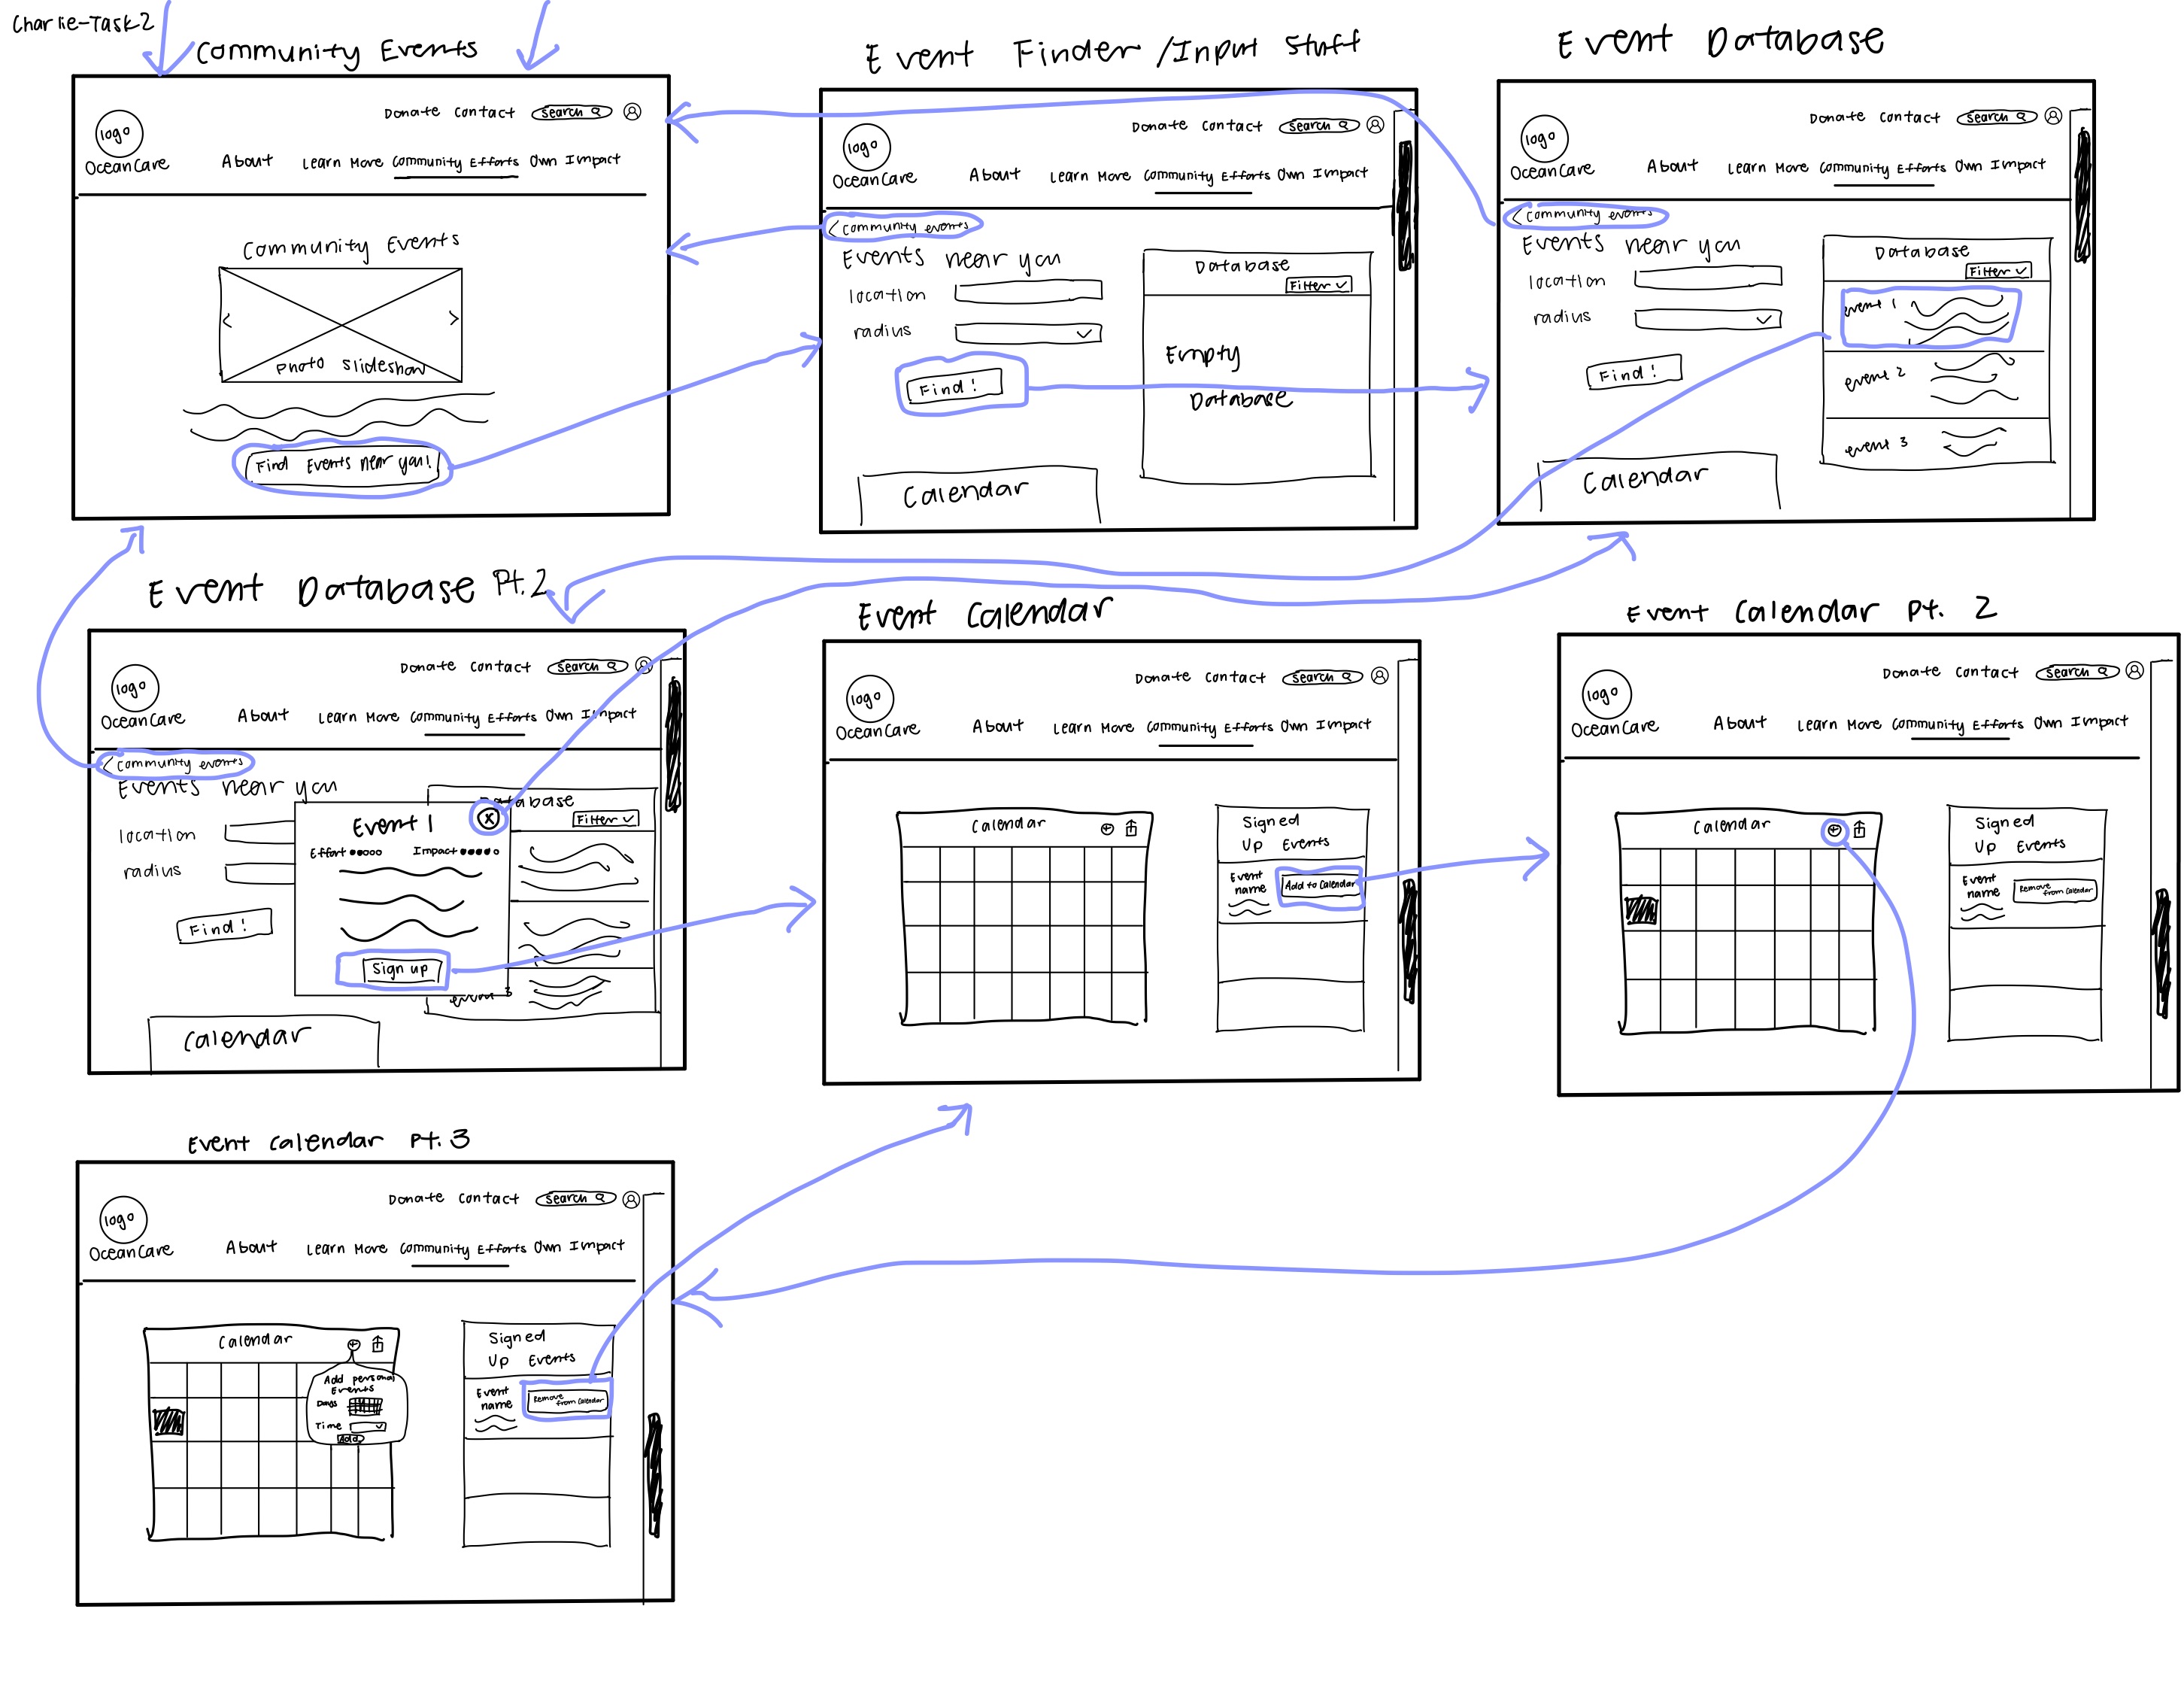 Charlie-Task2
Community Events
Donate Contact Search
logo
OceanCare
About Learn More Community Efforts Own Impact
Community Events
Photo Slideshow
Find Events near you!
Event Finder/Input Stuff
Donate Contact Search
logo
OceanCare
About Learn More Community Efforts Own Impact
< Community events
Events near you
location
radius
Find!
Database
Filter
Empty
Database
Calendar
Event Database
Donate Contact Search
logo
OceanCare
About Learn More Community Efforts Own Impact
< Community events
Events near you
location
radius
Find!
Database
Filter
event 1
event 2
event 3
Calendar
Event Database Pt.2
Donate Contact Search
logo
OceanCare
About Learn More Community Efforts Own Impact
< Community events
Events near you
location
radius
Find!
Database
Filter
Event 1
X
Effort Impact
Sign up
event 3
Calendar
Event Calendar
Donate Contact Search
logo
OceanCare
About Learn More Community Efforts Own Impact
Calendar
Signed
Up Events
Event
name
Add to Calendar
Event Calendar Pt. 2
Donate Contact Search
logo
OceanCare
About Learn More Community Efforts Own Impact
Calendar
Signed
Up Events
Event
name
Remove
from Calendar
Event Calendar Pt.3
Donate Contact Search
logo
OceanCare
About Learn More Community Efforts Own Impact
Calendar
Add personal
Events
Days
Time
Add
Signed
Up Events
Event
name
Remove
from Calendar